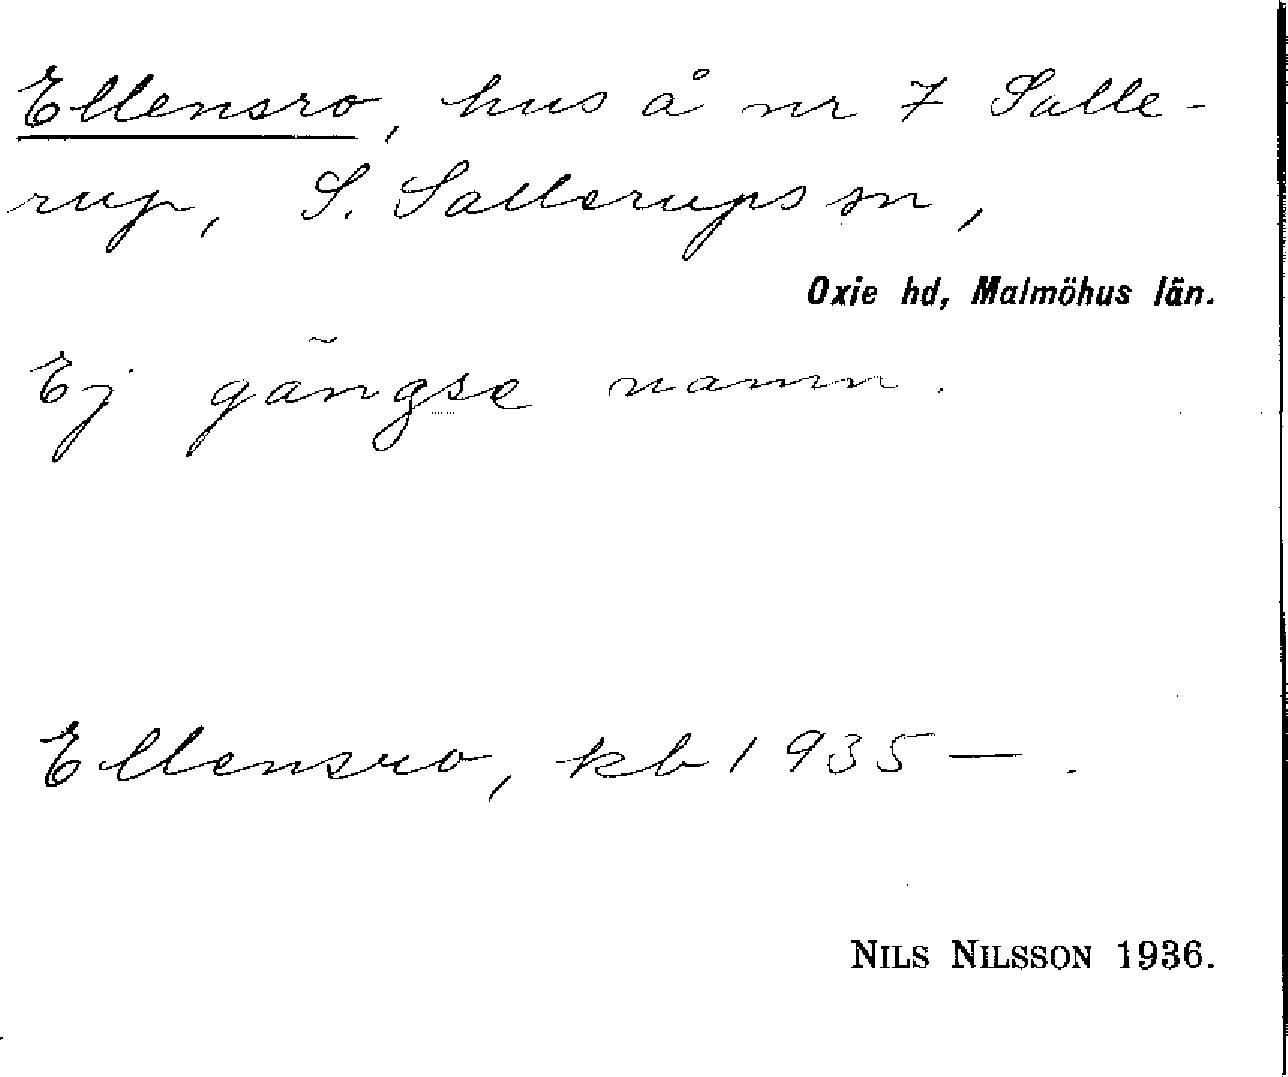 Ellensro, hus å nr 7 Salle-
rup, S. Sallerups sn,
Oxie hd, Malmöhus län.
Ej gängse namn.
Ellensro, kb 1935 — .
NILS NILSSON 1936.